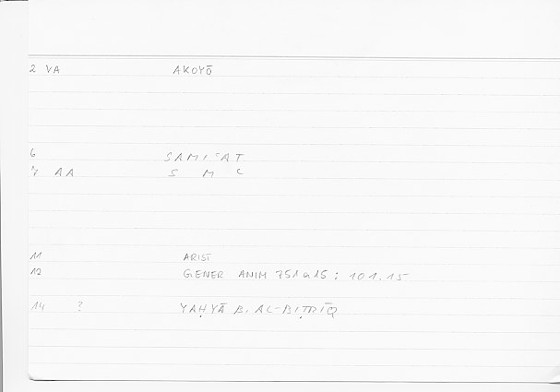 2 VA AKOYŌ
6 SAMIʿAT
AA S M ʿ
11 ARIST
12 GENER ANIM 751a15 ; 101.15
14 ? YAḤYĀ B. AL-BIṬRĪQ